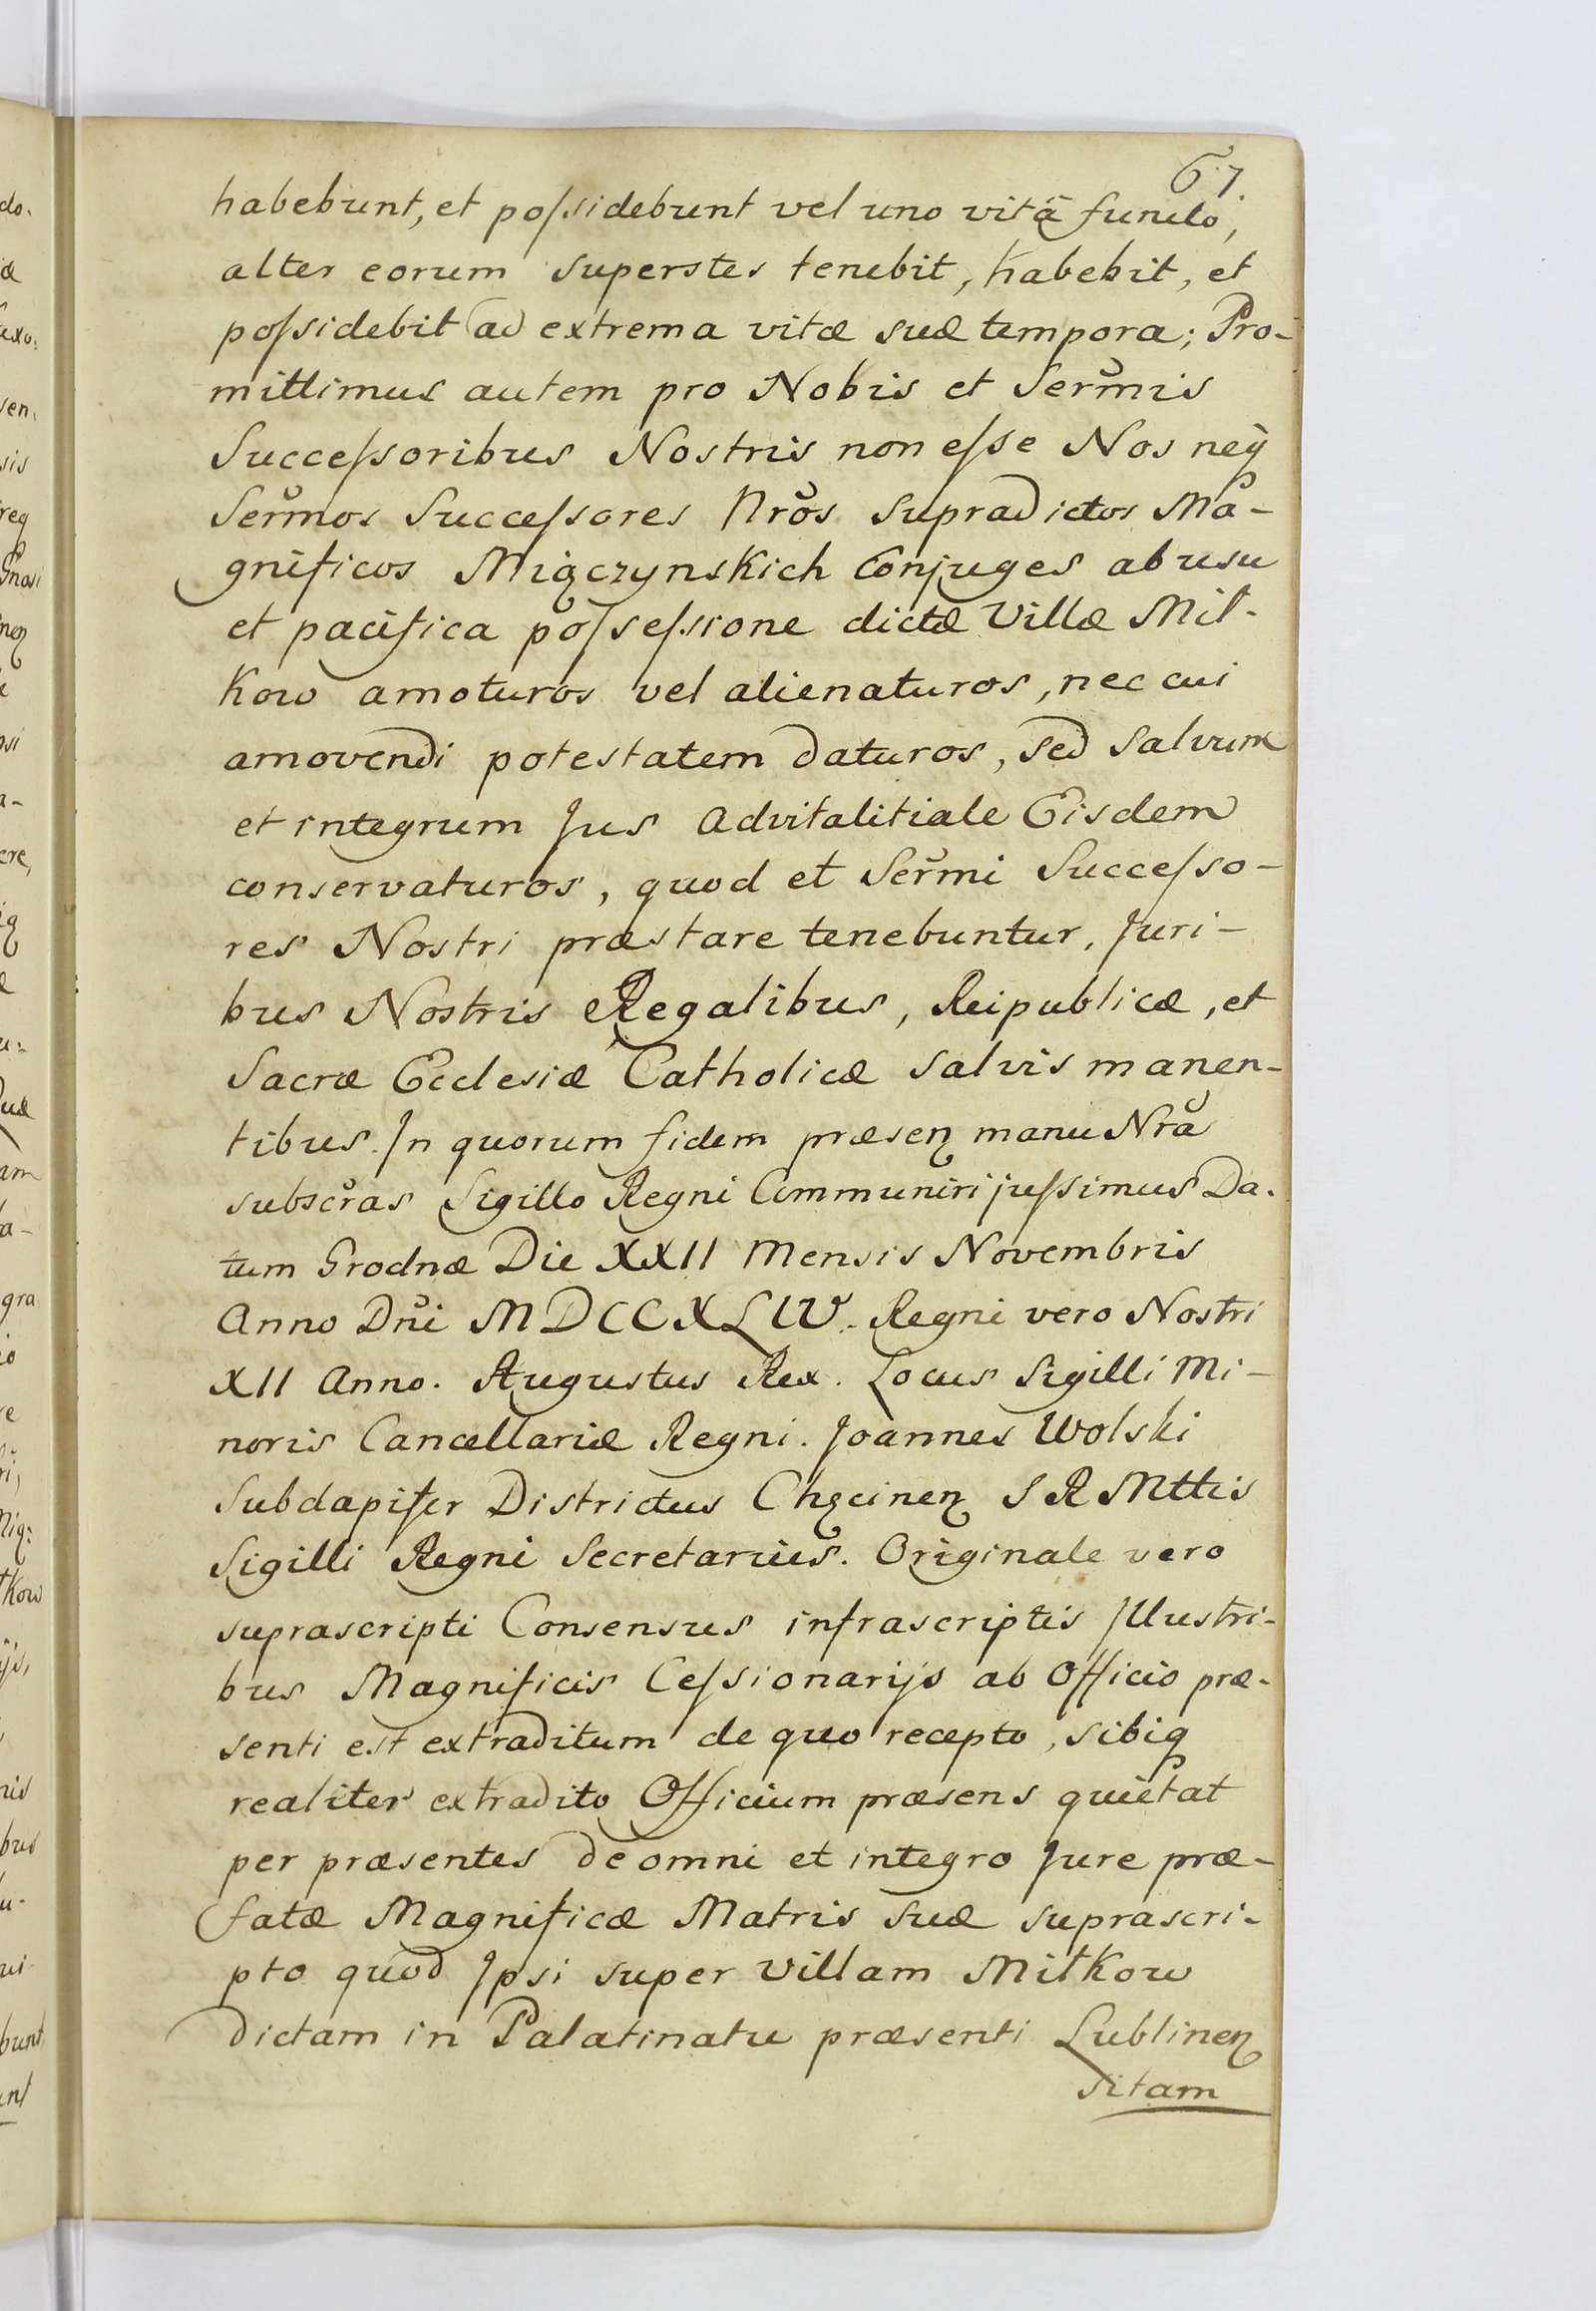 67.
habebunt, et poſsidebunt vel uno vitâ functo,
alter eorum superstes tenebit, habebit, et
poſsidebit ad extrema vitæ suæ tempora; Pro-
mittimus autem pro Nobis et Serm̃is
Succeſsoribus Nostris non eſse Nos neq̃
Serm̃os Succeſsores Nr̃os supradictos Ma-
gnificos Miączynskich Conjuges ab usu
et pacifica poſseſsione dictæ Villæ Mił-
kow amoturos vel alienaturos, nec cui
amovendi potestatem daturos, sed salvum
et integrum Jus Advitalitiale Eisdem
conservaturos, quod et Serm̃i Succeſso-
res Nostri præstare tenebuntur, Juri-
bus Nostris Regalibus, Reipublicæ, et
Sacræ Ecclesiæ Catholicæ salvis manen-
tibus. In quorum fidem præsen̨ manu Nr̃a
subscr̃as Sigillo Regni Communiri juſsimus Da-
tum Grodnæ Die XXII Mensis Novembris
Anno Dn̄i MDCCXLIV. Regni vero Nostri
XII Anno. Augustus Rex. Locus Sigilli Mi-
noris Cancellariæ Regni. Joannes Wolski
Subdapifer Districtus Chęcinen̨ S R Mttis
Sigilli Regni Secretarius. Originale vero
suprascripti Consensus infrascriptis Illustri-
bus Magnificis Ceſsionarijs ab Officio præ-
senti est extraditum de quo recepto, sibiq
realiter extradito Officium præsens quietat
per præsentes de omni et integro Jure præ-
fatæ Magnificæ Matris suæ suprascri-
pto quod Ipsi super Villam Miłkow
dictam in Palatinatu præsenti Lublinen̨
sitam